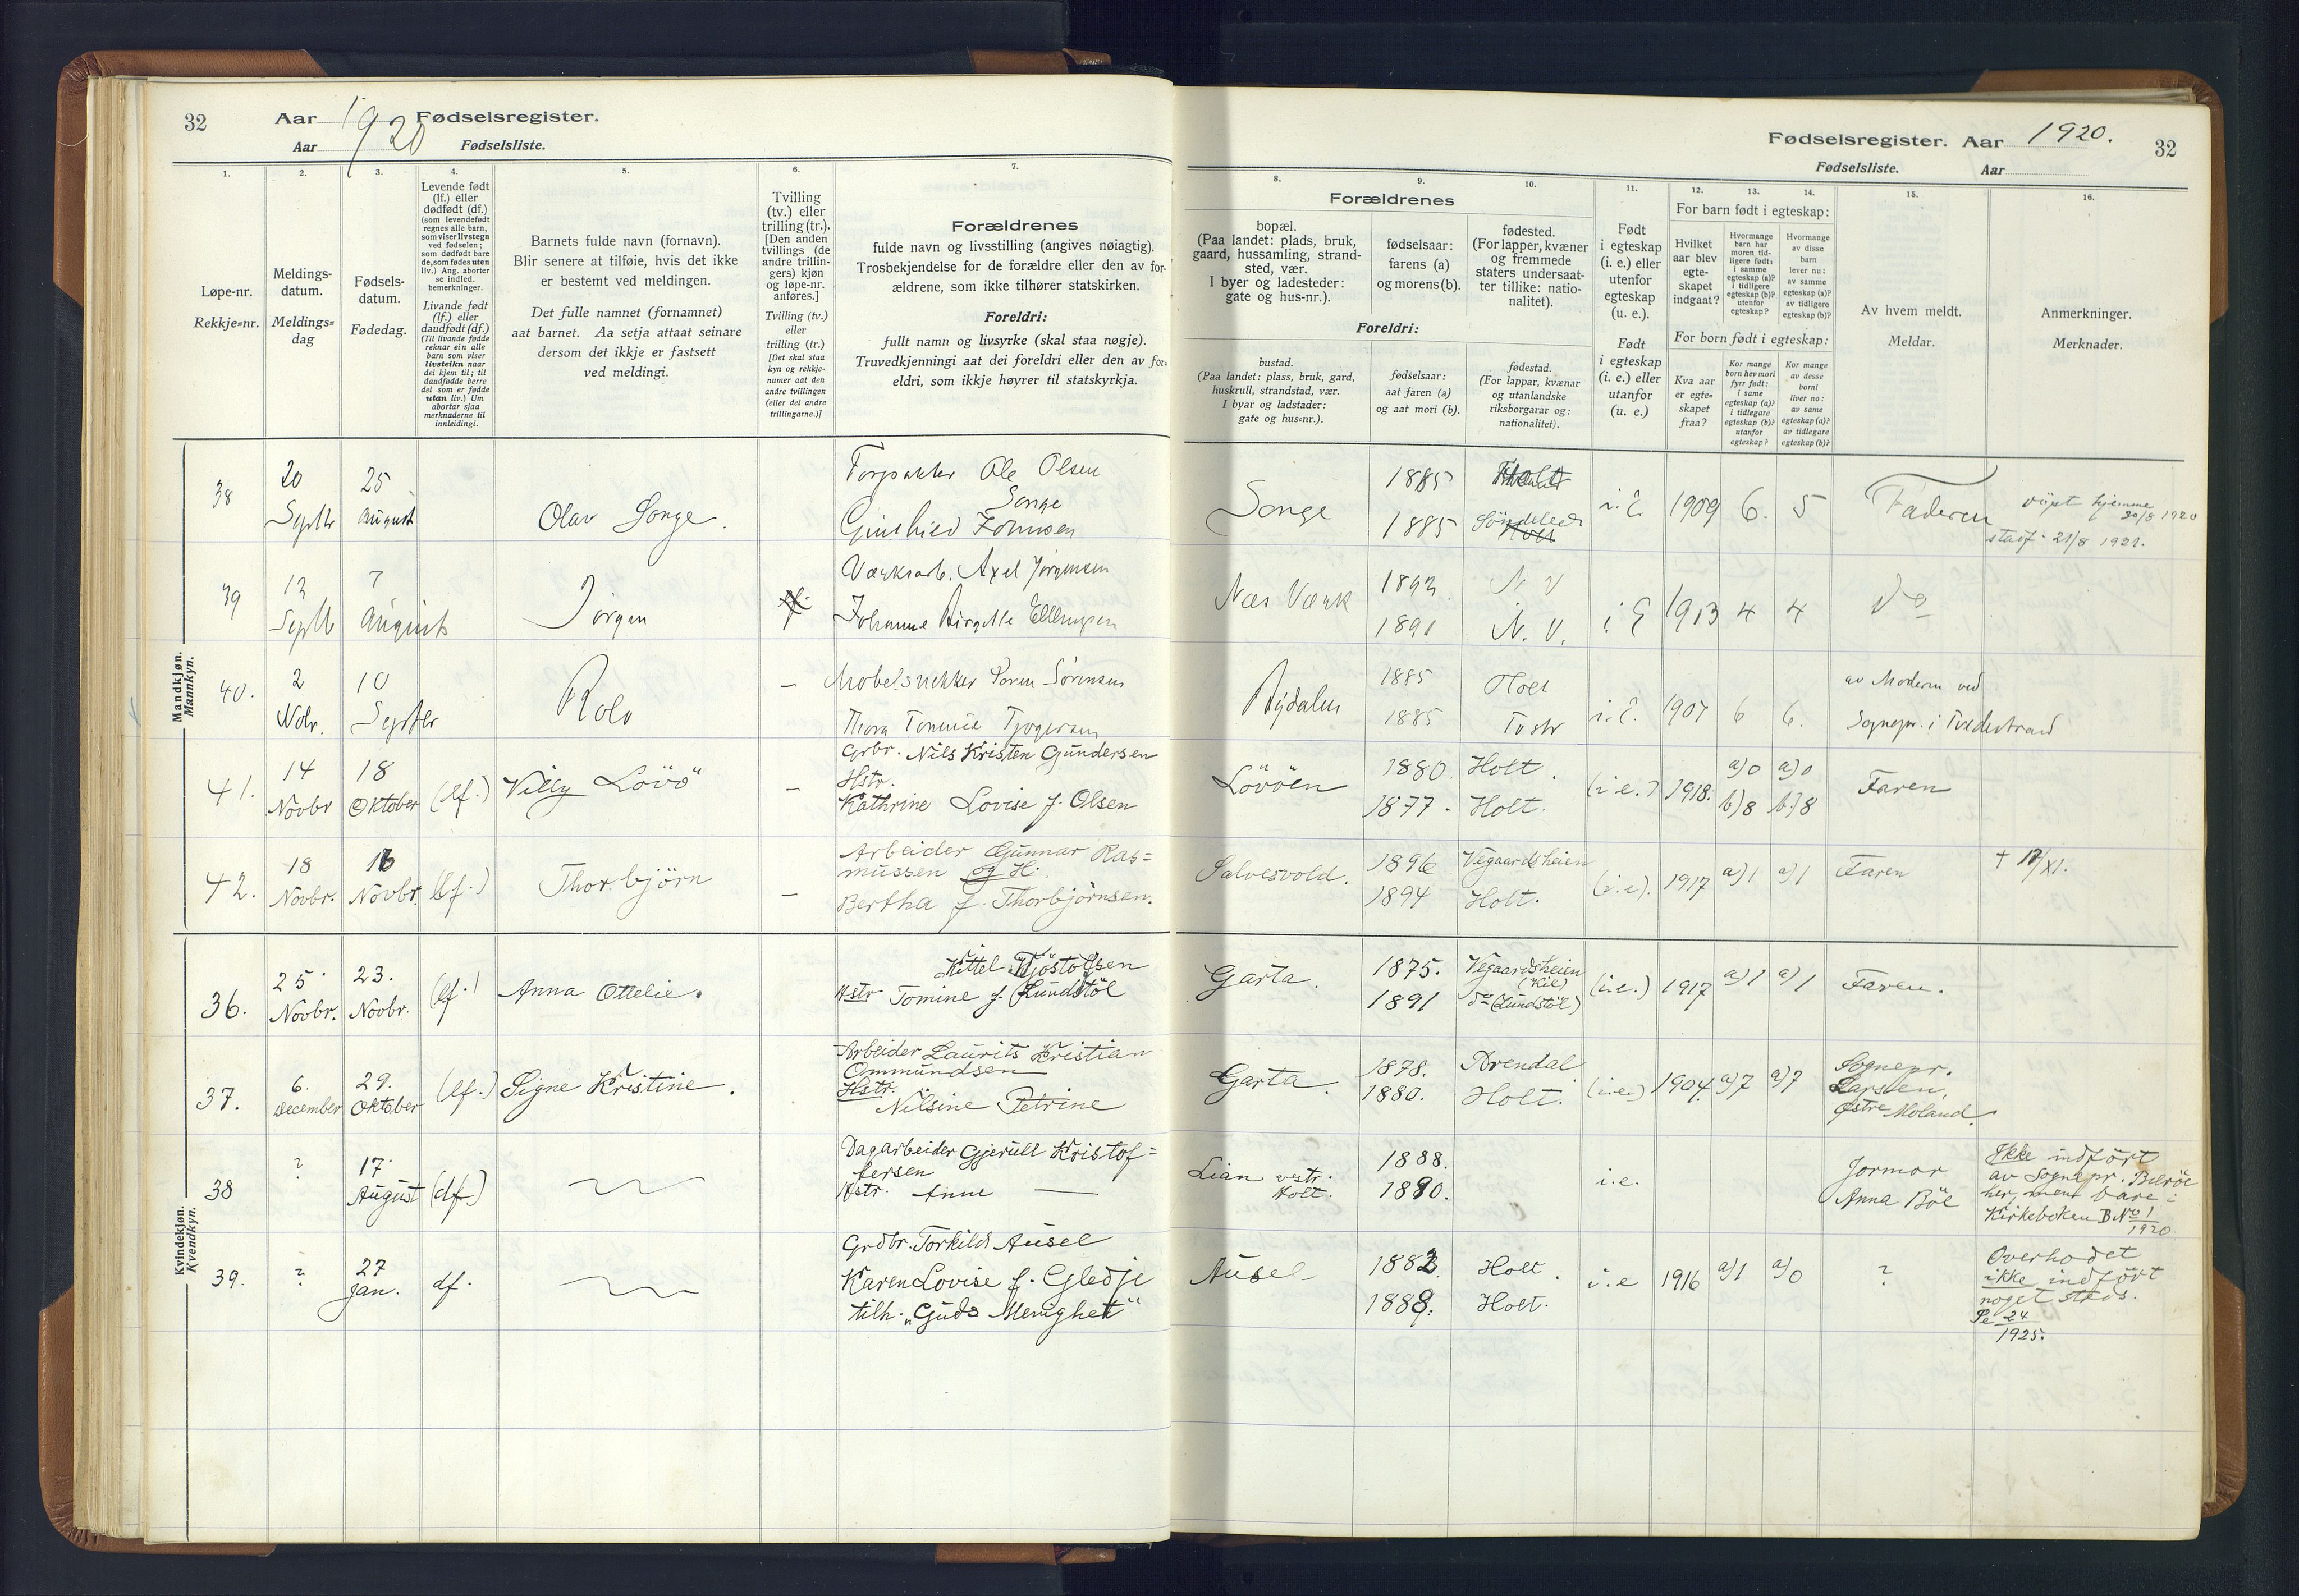 32 Aar 1920 Fødselsregister.
Aar Fødselsliste.
Fødselsregister. Aar 1920. 32
Fødselsliste. Aar
1. 2. 3. 4. 5. 6. 7.
Løpe-nr.
Rekkje=nr.
Meldings-
datum.
Meldings=
dag
Fødsels-
datum.
Fødedag.
Levende født
(lf.) eller
dødfødt (df.)
(som levendefødt
regnes alle barn,
som viser livstegn
ved fødselen;
som dødfødt bare
de, som fødes uten
liv.) Ang. aborter
se indled.
bemerkninger.
Livande født
(lf.) eller
daudfødt (df.)
(Til livande fødde
reknar ein alle
barn som viser
livsteikn naar
dei kjem til; til
daudfødde berre
dei som er fødde
utan liv.) Um
abortar sjaa
merknaderne til
innleidingi.
Barnets fulde navn (fornavn).
Blir senere at tilføie, hvis det ikke
er bestemt ved meldingen.
Det fulle namnet (fornamnet)
aat barnet. Aa setja attaat seinare
dersom det ikkje er fastsett
ved meldingi.
Tvilling
(tv.) eller
trilling (tr.).
[Den anden
tvillings (de
andre trillin-
gers) kjøn
og løpe-nr.
anføres.]
Tvilling (tv.)
eller
trilling (tr.)
[Det skal staa
kyn og rekkje-
numer aat den
andre tvillingen
(eller dei andre
trillingarne.)]
Forældrenes
fulde navn og livsstilling (angives nøiagtig).
Trosbekjendelse for de forældre eller den av for-
ældrene, som ikke tilhører statskirken.
Foreldri:
fullt namn og livsyrke (skal staa nøgje).
Truvedkjenningi aat dei foreldri eller den av for-
eldri, som ikkje høyrer til statskyrkja.
8. 9. 10. 11. 12. 13. 14. 15. 16.
Forældrenes
bopæl.
(Paa landet: plads, bruk,
gaard, hussamling, strand-
sted, vær.
I byer og ladesteder:
gate og hus-nr.).
fødselsaar:
farens (a)
og morens (b).
fødested.
(For lapper, kvæner
og fremmede
staters undersaat-
ter tillike: natio-
nalitet).
Foreldri:
bustad.
(Paa landet: plass, bruk, gard,
huskrull, strandstad, vær.
I byar og ladstader:
gate og hus-nr.).
fødselsaar:
aat faren (a)
og aat mori (b).
fødestad.
(For lappar, kvænar
og utanlandske
riksborgarar og:
nationalitet).
Født
i egteskap
(i. e.) eller
utenfor
egteskap
(u. e.).
Født
i egteskap
(i. e.) eller
utanfor
(u. e.)
For barn født i egteskap:
Hvilket
aar blev
egte-
skapet
indgaat?
Hvormange
barn har
moren tid-
ligere født:
i samme
egteskap (a)?
i tidligere
egteskap (b)?
utenfor
egteskap?
Hvormange
av disse
barn
lever nu:
av samme
egteskap (a)?
av tidligere
egteskap (b)?
For born født i egteskap:
Kva aar
er egte-
skapet
fraa?
Kor mange
born hev mori
fyrr født:
i same
egteskap (a)?
i tidlegare
egteskap (b)?
utanfor
egteskap?
Kor mange
av desse
borni
liver no:
av same
egteskap (a)?
av tidlegare
egteskap (b)?
Av hvem meldt.
Meldar.
Anmerkninger.
Merknader.
Mandkjøn.
Mannkyn.
38 20 Septbr 25 August Olav Songe.
Forpakter Ole Olsen
Songe
Songe 1885 1885 Söndeled i. E. 1909 6. 5 Faderen
döpt hjemme
29/8 1920
stadf. 21/8 1921.
39 13 Septb 7 August Jörgen
Værksarb. Axel Jörgensen
Johanne Birgitte Ellingsen
Nes Værk 1893 1891 N. V. N. V. i E 1913 4 4 Do
40. 2 Nobr. 10 Septbr Rolv –
Mobelsnekker Soren Sörensen
Rydalen 1885 1885 Holt Tvstr i. E. 1907 6 6.
av Moderen ved
Sognepr. i Tvedestrand
41. 14 Novbr 18 Oktober (lf.) Villy Lövö –
Grbr. Nils Kristen Gundersen
Hstr.
Kathrine Lovise f. Olsen
Lövöen 1880. 1877. Holt. Holt. (i.e.) 1918. a)0 b)8 a)0 b)8 Faren
42. 18 Novbr. 16 Novbr. (lf.) Thorbjörn –
Arbeider Gunnar Ras=
mussen og H.
Bertha f. Thorbjörnsen.
Salvesvold. 1896 1894 Vegaardsheien Holt. (i.e.) 1917 a)1 a)1 Faren † 17/XI.
Kvindekjøn.
Kvendkyn.
36. 25 Novbr. 23. Novbr. (lf.) Anna Ottelie.
Kittel Kjöstolsen
Hstr. Tomine f. (Lundstöl
Garta. 1875. 1891 Vegaardsheien (Kil) do (Lundstöl) (i.e.) 1917 a)1 a)1 Faren.
37. 6. December 29. Oktober (lf.) Signe Kristine.
Arbeider Laurits Kristian
Ommundsen
Hstr.
Nilsine Petrine
Garta. 1878. 1880. Arendal Holt. (i.e.) 1904. a)7 a)7
Sognepr.
Carsten,
Østre Moland.
38 ? 17 August (df.)
Dagarbeider Gjerull Kristof=
fersen
Hstr. Anne —
Lian vstr. Holt. 1888. 1890. i.e.
Jormor
Anna Böe
Ikke indfört
av Sognepr. Bueröe
her, men bare i
Kirkeboken B No 1
1920
39. ? 27 Jan. df.
Grdbr. Torkild Ausel
Karen Lovise f. Gledje
tilh. „Guds Menighet"
Ausel 1882. 1888. Holt. Holt. i.e 1916 a)1 a)0 ?
Overhodet
ikke indfört
noget steds.
Pe 24
1925.